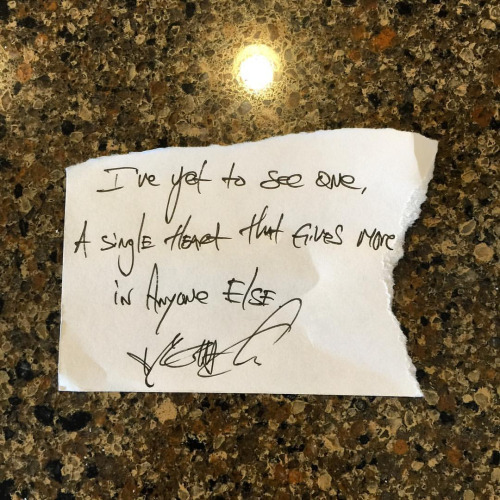 I've yet to see one,
A single Heart that Gives More
in Anyone Else